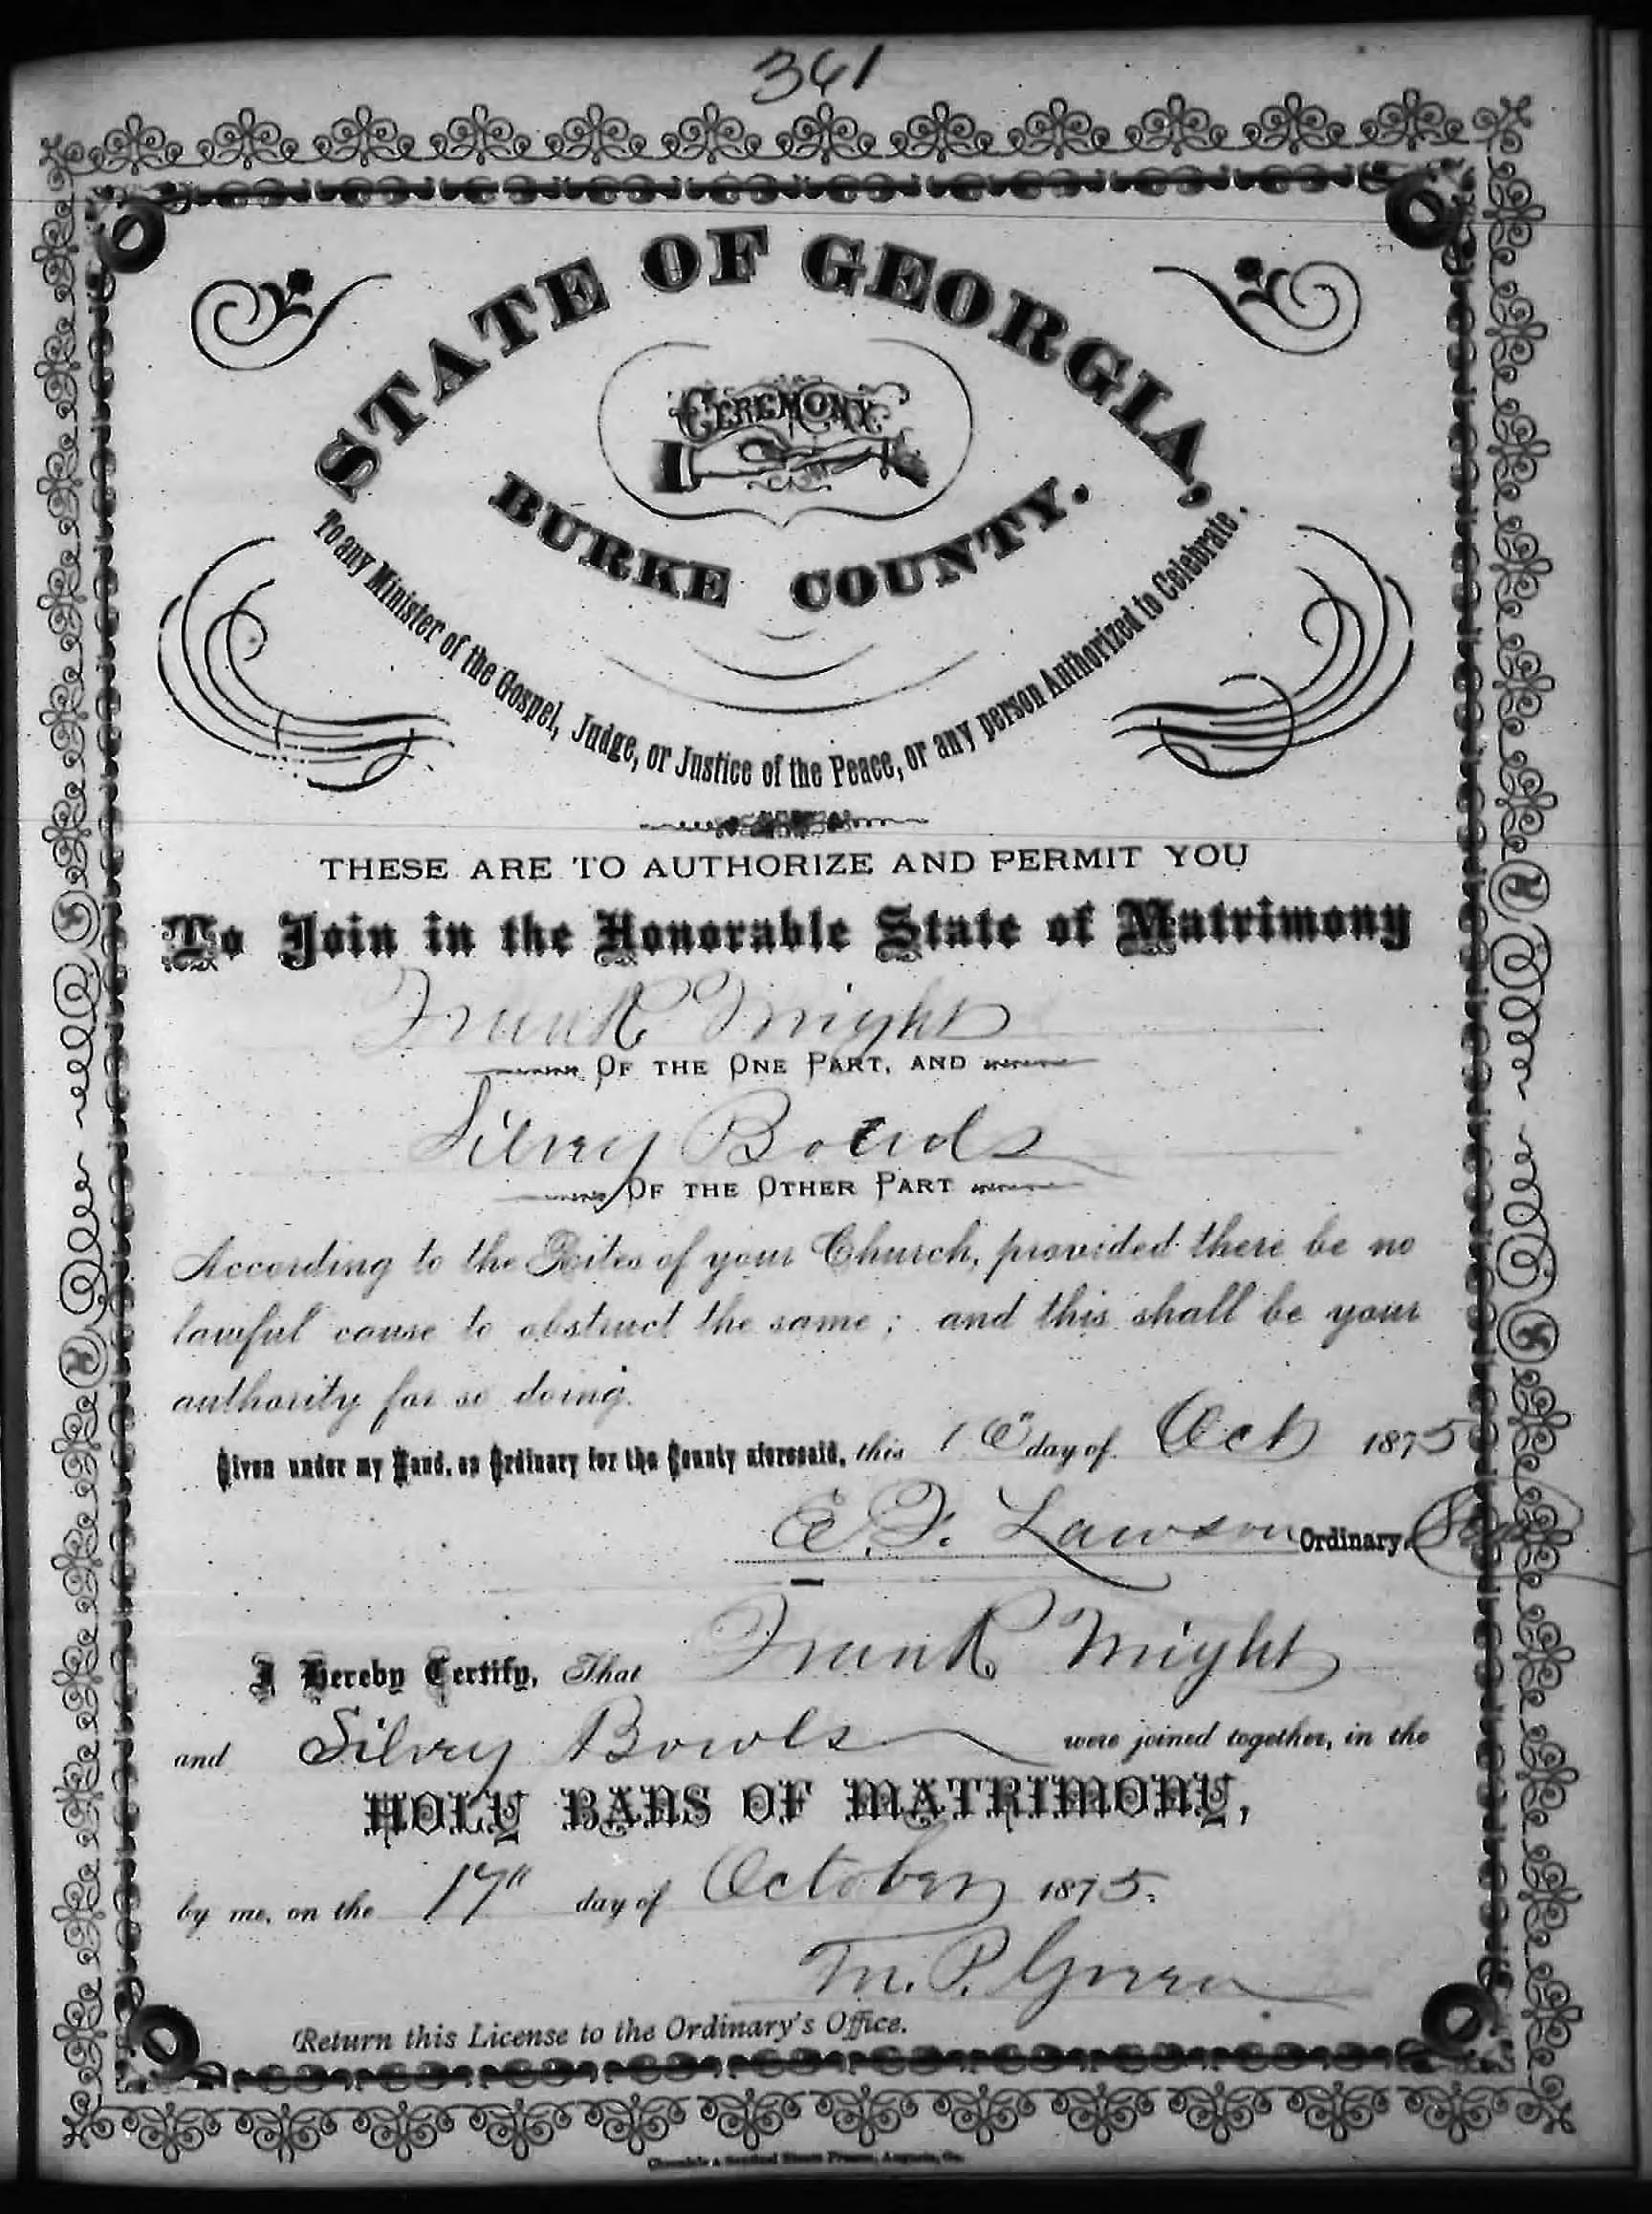 361
STATE OF GEORGIA,
CEREMONY
BURKE COUNTY.
To any Minister of the Gospel, Judge, or Justice of the Peace, or any person Authorized to Celebrate.
THESE ARE TO AUTHORIZE AND PERMIT YOU
To Join in the Honorable State of Matrimony
Frank Wright
OF THE ONE PART, AND
Silvey
OF THE OTHER PART
According to the Rites of your Church, provided there be no
lawful cause to obstruct the same; and this shall be your
authority for so doing.
Given under my Hand, as Ordinary for the County aforesaid, this day of Oct 1875
E. F. Lawson Ordinary.
I Hereby Certify, That Frank Wright
and Silvey Bowls were joined together, in the
HOLY BANS OF MATRIMONY,
by me, on the 17" day of October 1875.
M. P. Green
Return this License to the Ordinary's Office.
Chronicle & Sentinel Steam Presses, Augusta, Ga.